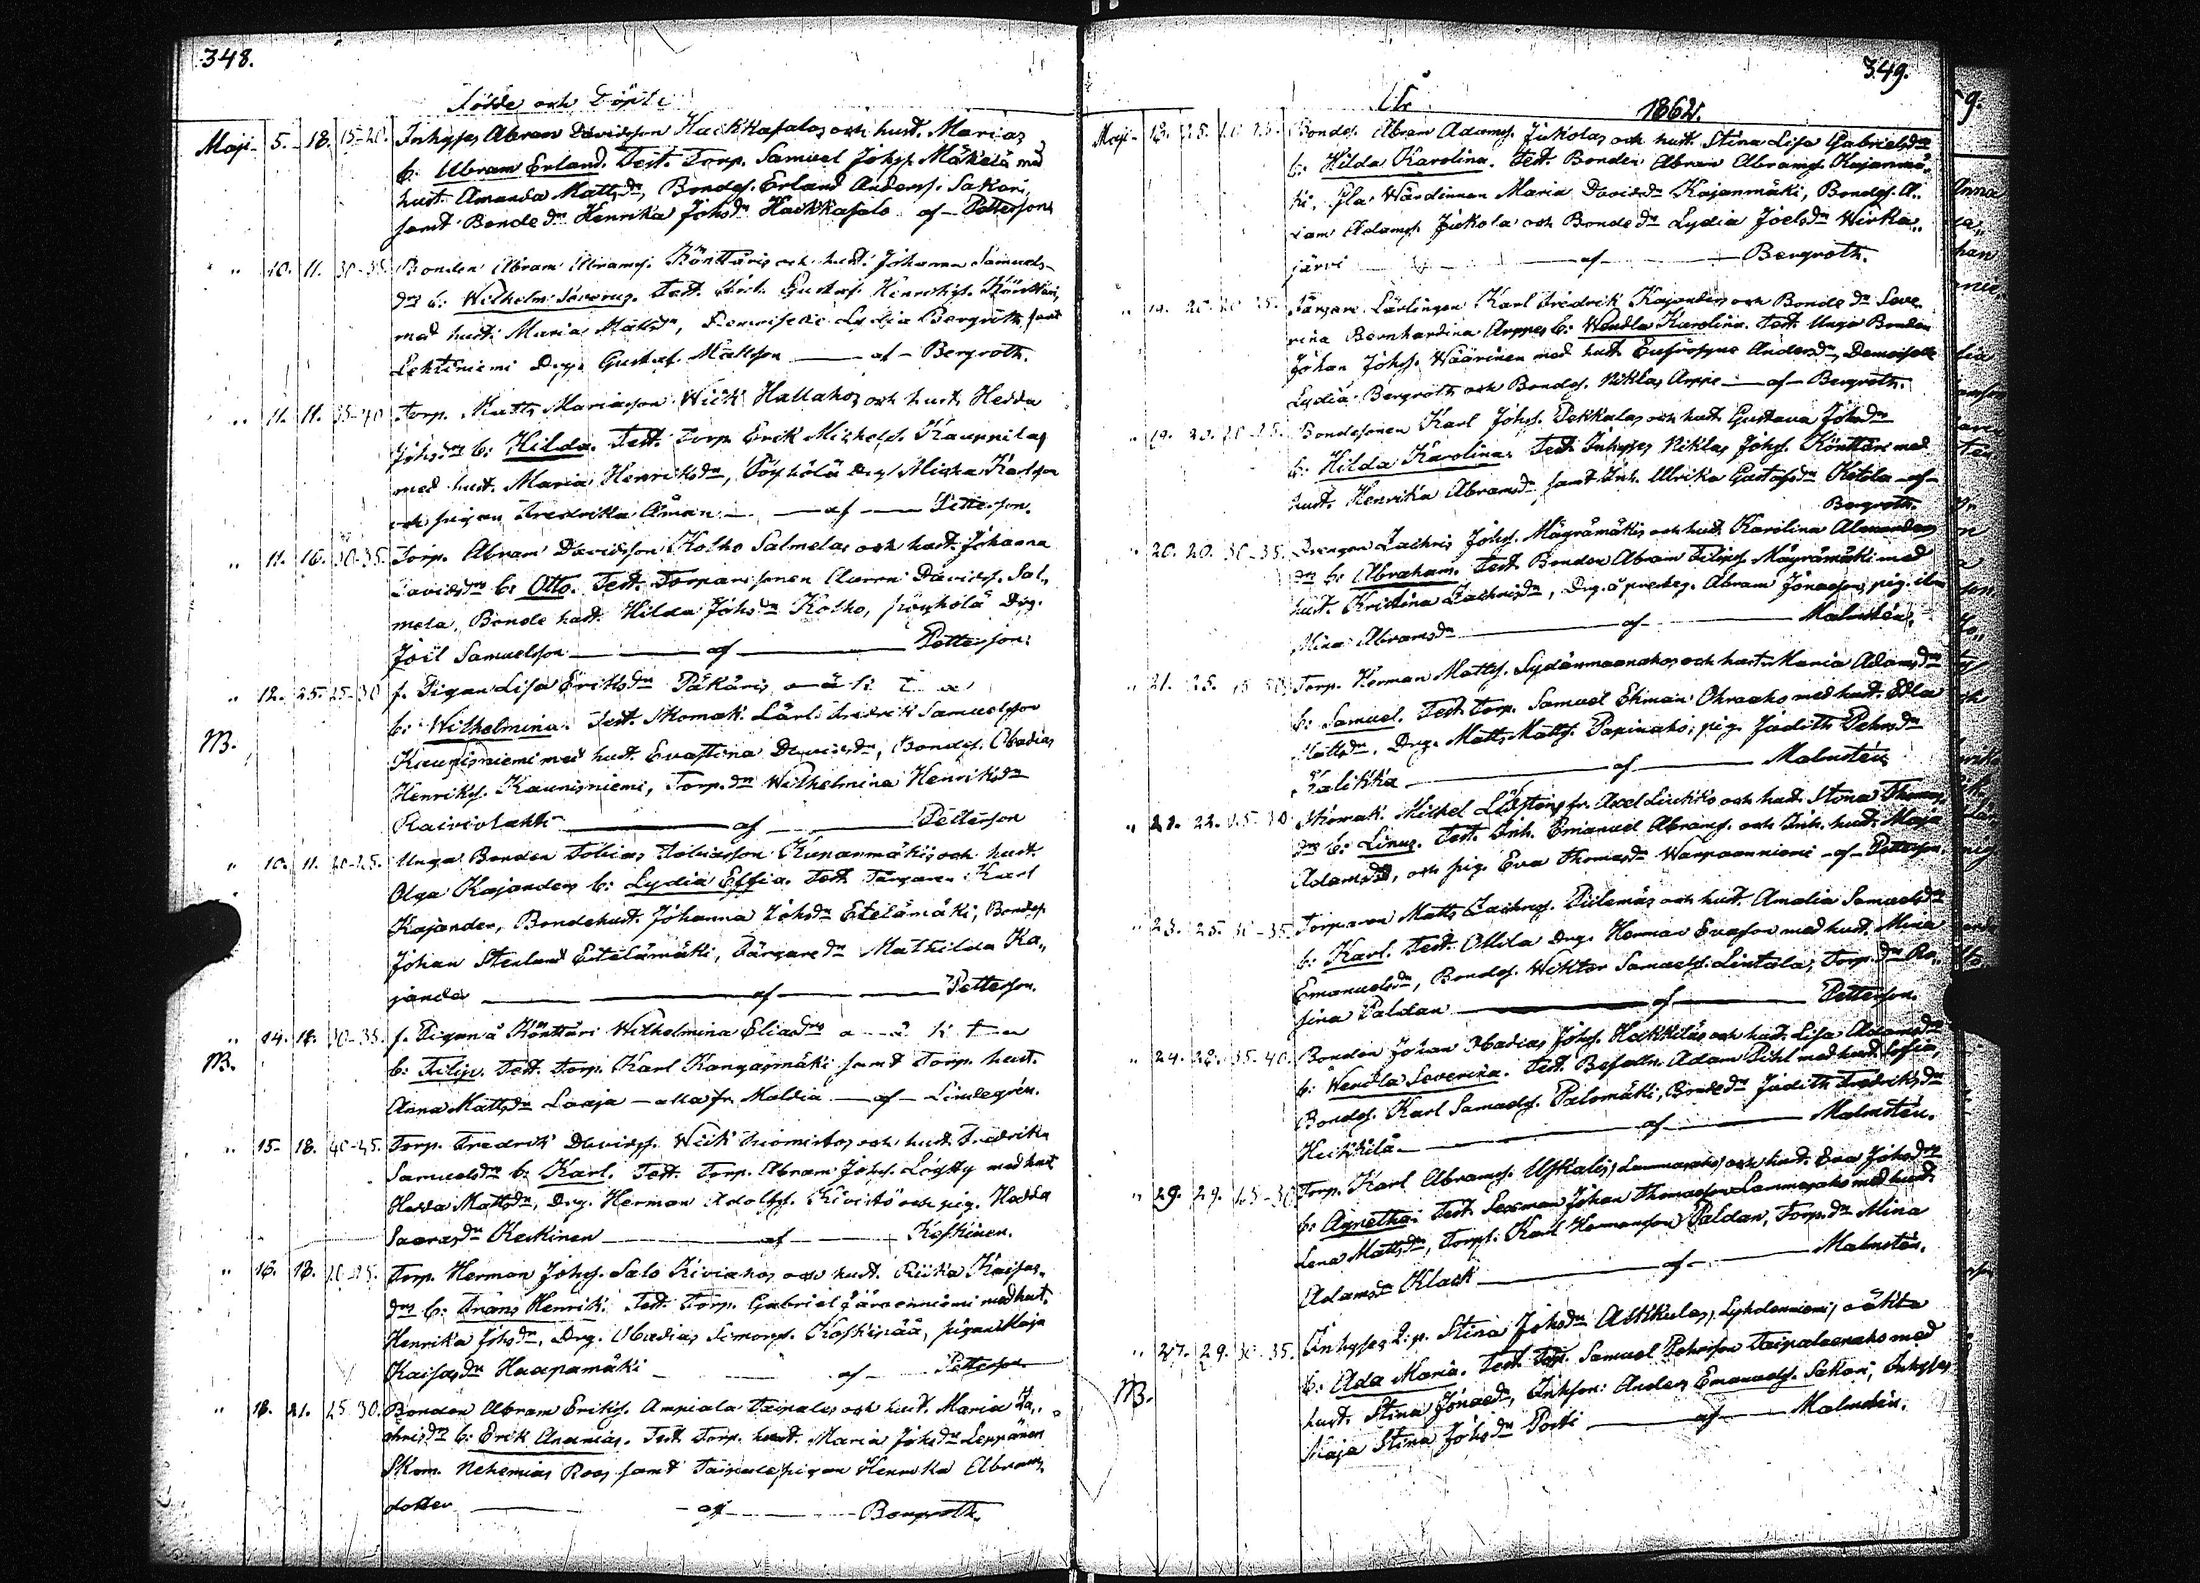 348.
Födde och Döpte
Maji 5. 18. 15-20. Inhyses Abram Davidsson Hackkasalos och hust. Marias
b: Abram Erland. Test. Torp. Samuel Johss. Mäkelä med
hust. Amanda Mattsdr, Bondes. Erland Anderss. Sakari,
samt Bonde dr Henrika Johsdr Hackkasalo af Petterson
" 10. 11. 30-35. Bonden Abram Abramss. Könttäris och hust. Johanna Samuels-
drs b: Wilhelm Severus. Test. Gustaf Henrikss. Könttäri,
med hust. Maria Mattsdr, Demoiselle Lydia Bergroth samt
Lehtiniemi Drg. Gustaf Mattsson af Bergroth.
" 11. 11. 35-40 Torp. Matts Mariasson Wiik Hallahos och hust. Hedda
Johsdrs b: Hilda. Test. Torp. Erik Michelss. Kauppilas
med hust. Maria Henriksdr, Pöyhölä drg Miska Karlsson
och pigan Fredrika Åman af Petterson.
" 11. 16. 30-35. Torp. Abram Davidsson Kolho Salmelas och hust. Johanna
Davidsdrs b: Otto. Test. Torparesonen Aaron Davidss. Sal,,
mela, Bonde hust. Hilda Johsdr Kolho, Pöyhölä Drg.
Joel Samuelsson af Petterson.
" 12. 25. 25-30 f. Pigan Lisa Eriksdrs Päkäris o ä k t a
NB. b: Wilhelmina. Test. Skomak. Lärl. Fredrik Samuelsson
Kaunisniemi med hust. Eva Stina Davidsdr, Bondes. Obadias
Henrikss. Kaunisniemi, Torp. dr Wilhelmina Henriksdr
Raiviolahti af Petterson
" 10. 11. 20-25. Unga Bonden Tobias Tobiasson Kunanmäkis och hust.
Olga Kajanders b: Lydia Effia. Test. Färgaren Karl
Kajander, Bondehust. Johanna Johsdr Etelämäki, Bondes.
Johan Stenlund Etelämäki, Färgare dr Mathilda Ka,,
jander af Petterson.
" 14. 18. 30-35. f. Pigan å Könttäri Wilhelmina Eliasdrs o ä k t a
NB. b: Filip. Test. Torp. Karl Kangasmäki samt Torp. hust.
Anna Mattsdr Laaja alla fr. Maldia af Lindegrén.
" 15. 18. 40-45. Torp. Fredrik Davidss. Wiik Niemistös och hust. Fredrika
Samuelsdrs b: Karl. Test. Torp. Abram Johss. Löytty med hust
Hedda Mattsdr, Drg. Herman Adolfss. Kivistö och pig. Hedda
Saarasdr Keikinen af Koskinen.
" 16. 18. 20-25. Torp. Herman Johss. Salo Kiviahos och hust. Riika Kaisas-
drs b: Frans Henrik. Test. Torp. Gabriel Järvenniemi med hust.
Henrika Johsdr, Drg. Obadias Simonss. Koskipää, pigan Maja
Kaisasdr Haapamäki af Petterson
" 18. 21. 25-30. Bonden Abram Erikss. Ampiala Taipales och hust. Maria Za,,
chrisdrs b: Erik Ananias. Test. Torp. hust. Maria Johsdr Leppänen
Skom. Nehemias Roos samt Taipale pigan Henrika Abrams
dotter af Bergroth.
349.
År 1862.
Maji 18. 25. 20-25. Bondes. Abram Adamss. Jukolas och hust. Stina Lisa Gabrielsdrs
b: Hilda Karolina. Test. Bonden Abram Abramss. Kajanmä,,
ki, Gla Wärdinnan Maria Davidsdr Kajanmäki, Bondes. A,,
ram Adamss. Jukola och Bonde dr Lydia Joelsdr Wirka,,
järvi af Bergroth.
" 19. 20. 20-25. Färgare Lärlingen Karl Fredrik Kajanders och Bonde dr Seve
rina Bernhardina Arppes b: Wendla Karolina. Test. Unga Bonden
Johan Johss. Wäärinen med hust. Eufrosyne Andersdr, Demoiselle
Lydia Bergroth och Bondes. Niklas Arppe af Bergroth.
" 19. 20. 20-25. Bondesonen Karl Johss. Pekkalas och hust. Gustava Johsdrs
b: Hilda Karolina. Test. Inhyses Niklas Johss. Könttäri med
hust. Henrika Abramsdr samt Inh. Ulrika Gustafsdr Ketola af
Bergroth.
" 20. 20. 30-35. Drengen Zachris Johss. Mägrämäkis och hust. Karolina Alexanders
drs b: Abraham. Test. Bonden Abram Filipss. Mägrämäki med
hust. Kristina Zachrisdr, Drg. å prestg. Abram Jonasson, pig.
Mina Abramsdr af Malmstén.
" 21. 25. Torp. Herman Mattss. Sydänmaanahos och hust. Maria Adamsdrs
b: Samuel. Test. Torp. Samuel Ekman Ohraaho med hust. Edla
Mattsdr, Drg. Matts Mattss. Papinaho, pig. Judith Pehrsdr
Kalikka af Malmstén
" 21. 22. 25-30 Skomak. Mikkel Löfströms fr. Axel Liukko och hust. Stina Thomas,,
drs b: Linus. Test. Inh. Emanuel Abramss. och Inh. hust. Maja
Adamsdr, och pig. Eva Thomasdr Warpaanniemi af Petterson.
" 23. 25. 30-35. Torparen Matts Zachriss. Pielemäs och hust. Amalia Samuelsdrs
b: Karl. Test. Ollila drg. Herman Evasson med hust. Mina
Emanuelsdr, Bondes. Wiktor Samuelss. Lintala, Torp. dr Ro,,
sina Paldan af Petterson.
" 24. 28. 35-40. Bonden Johan Obadias Johss. Heikkiläs och hust. Lisa Adamsdrs
b: Wendla Severina. Test. Befalln. Adam Pihl med hust. Sofia,
Bondes. Karl Samuelss. Palomäki, Bonde dr Judith Fredriksdr
Heikkilä af Malmstén.
" 29. 29. 25-30 Torp. Karl Abramss. Uskalis, Lammasaho och hust. Eva Johsdrs
b: Agnetha. Test. Sexman Johan Thomasson Lammasaho med hust.
Lena Mattsdr, Torps. Karl Hermansson Paldan, Torp. dr Mina
Adamsdr Klack af Malmstén.
" 27. 29. 30-35. Inhyses q.p. Stina Johsdrs Alkkulas, Lyhdenniemi, oäkta
NB. b: Ada Maria. Test. Torp. Samuel Pehrsson Taipaleenaho med
hust. Stina Jonaedr, Inhson: Anders Emanuelss. Sakari, Inhyses
Maja Stina Johsdr Porti af Malmstén.